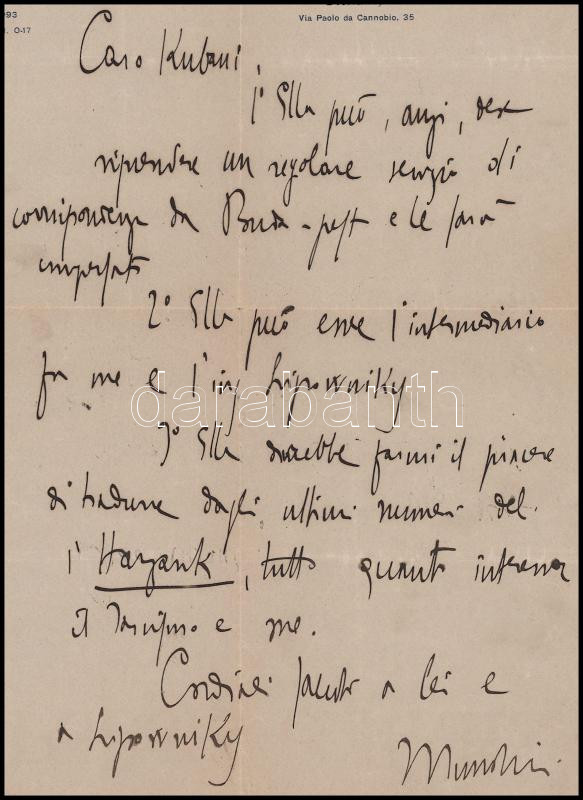 993
. O-17
Via Paolo da Cannobio, 35
Caro Kubani,
1° Ella può, anzi, deve
riprendere un regolare servizio di
corrispondenza da Buda-pest e le sarà
2° Ella può essere l'intermediario
fra me e l'ing Lipowniky
darabanth
3° Ella dovrebbe farmi il piacere
di tradurre dagli ultimi numeri del
l'Hazank, tutto quanto interessa
il fascismo e me.
Cordiali saluti a lei e
a Lipowniky
Mussolini